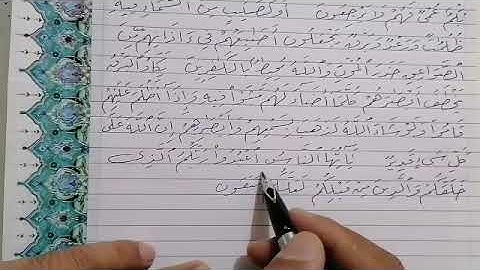 بُكْمٌ عُمْيٌ فَهُمْ لَا يَرْجِعُونَ أَوْ كَصَيِّبٍ مِنَ السَّمَاءِ فِيهِ
ظُلُمَاتٌ وَرَعْدٌ وَبَرْقٌ يَجْعَلُونَ أَصَابِعَهُمْ فِي ءَاذَانِهِمْ مِنَ
الصَّوَاعِقِ حَذَرَ الْمَوْتِ وَاللَّهُ مُحِيطٌ بِالْكَافِرِينَ يَكَادُ الْبَرْقُ
يَخْطَفُ أَبْصَارَهُمْ كُلَّمَا أَضَاءَ لَهُمْ مَشَوْا فِيهِ وَإِذَا أَظْلَمَ عَلَيْهِمْ
قَامُوا وَلَوْ شَاءَ اللَّهُ لَذَهَبَ بِسَمْعِهِمْ وَأَبْصَارِهِمْ إِنَّ اللَّهَ عَلَى
كُلِّ شَيْءٍ قَدِيرٌ يَا أَيُّهَا النَّاسُ اعْبُدُوا رَبَّكُمُ الَّذِي
خَلَقَكُمْ وَالَّذِينَ مِنْ قَبْلِكُمْ لَعَلَّكُمْ تَتَّقُونَ